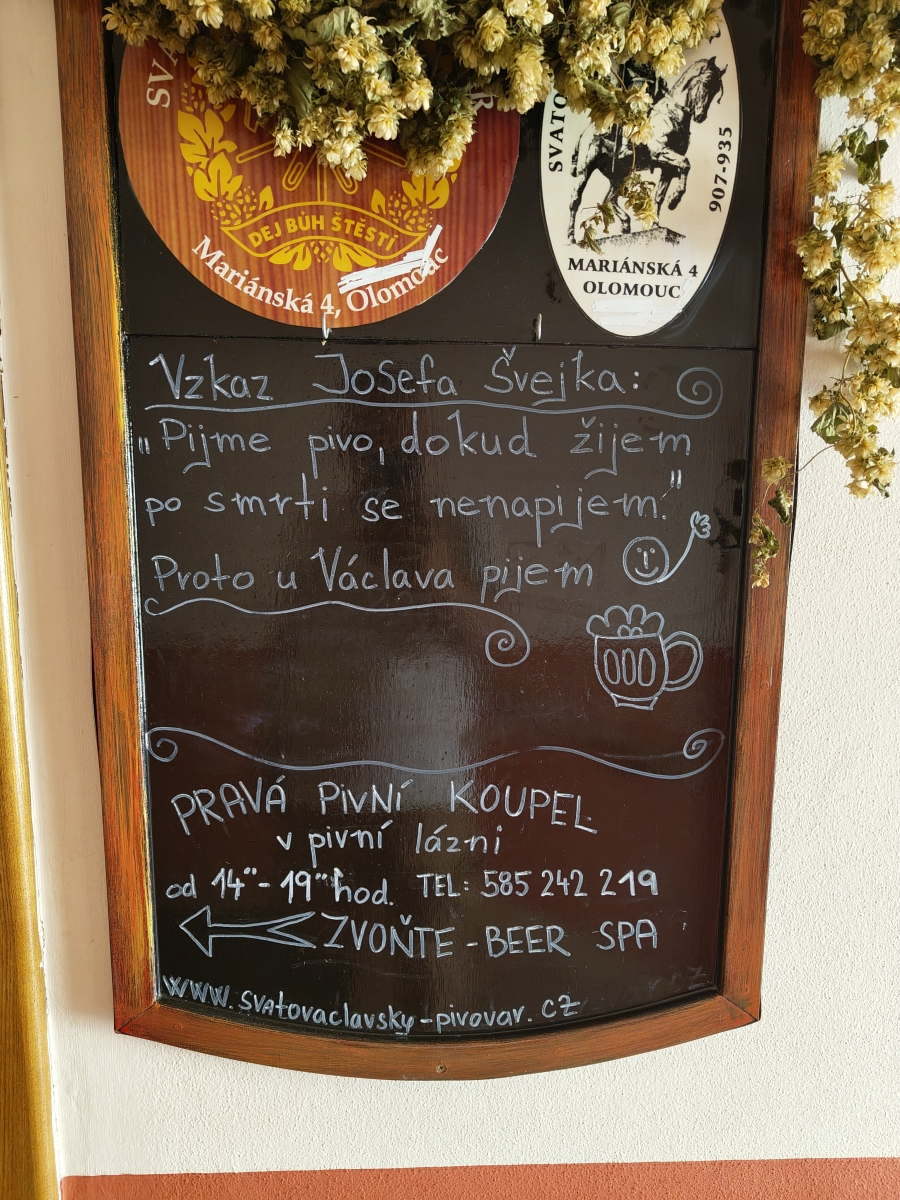 DEJ BŮH ŠTĚSTÍ
Mariánská 4, Olomouc
907-935
MARIÁNSKÁ 4
OLOMOUC
Vzkaz Josefa Švejka:
„Pijme pivo, dokud žijem
po smrti se nenapijem."
Proto u Václava pijem
PRAVÁ PIVNÍ KOUPEL
v pivní lázni
od 14°° - 19°° hod. TEL: 585 242 219
ZVOŇTE - BEER SPA
www.svatovaclavsky-pivovar.cz